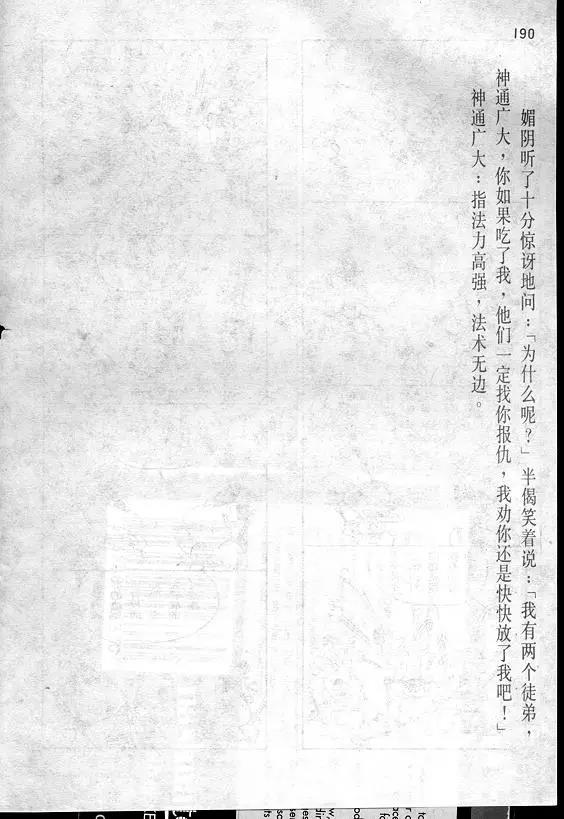 190
媚阴听了十分惊讶地问：「为什么呢？」半偈笑着说：「我有两个徒弟，
神通广大，你如果吃了我，他们一定找你报仇，我劝你还是快快放了我吧！」
神通广大：指法力高强，法术无边。